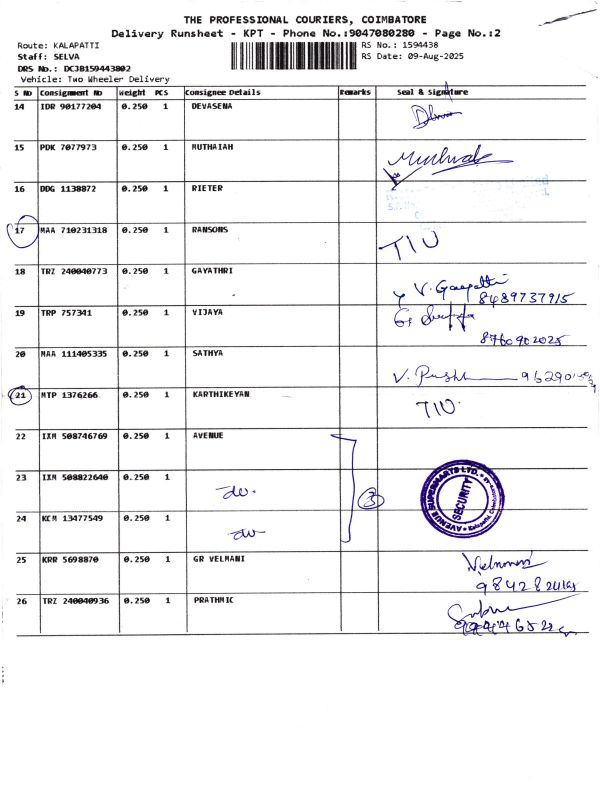 THE PROFESSIONAL COURIERS, COIMBATORE
Delivery Runsheet - KPT - Phone No.:9047080280 - Page No.:2
Route: KALAPATTI
RS No.: 1594438
Staff: SELVA
RS Date: 09-Aug-2025
DRS No.: DC3B159443802
Vehicle: Two Wheeler Delivery
S No Consignment No Weight PCS Consignee Details Remarks Seal & Signature
14 IDR 90177204 0.250 1 DEVASENA
15 PDK 7077973 0.250 1 MUTHAIAH
16 DDG 1138872 0.250 1 RIETER
17 MAA 710231318 0.250 1 RANSONS TIU
18 TRZ 240040773 0.250 1 GAYATHRI
8489737915
19 TRP 757341 0.250 1 VIJAYA
8760902025
20 MAA 111405335 0.250 1 SATHYA
21 MTP 1376266 0.250 1 KARTHIKEYAN TIU.
22 IXM 508746769 0.250 1 AVENUE
23 IXM 508822640 0.250 1 do. 3
AVENUE SUPERMARTS LTD.
SECURITY
24 KCM 13477549 0.250 1 do
25 KRR 5698870 0.250 1 GR VELMANI
26 TRZ 240040936 0.250 1 PRATHMIC